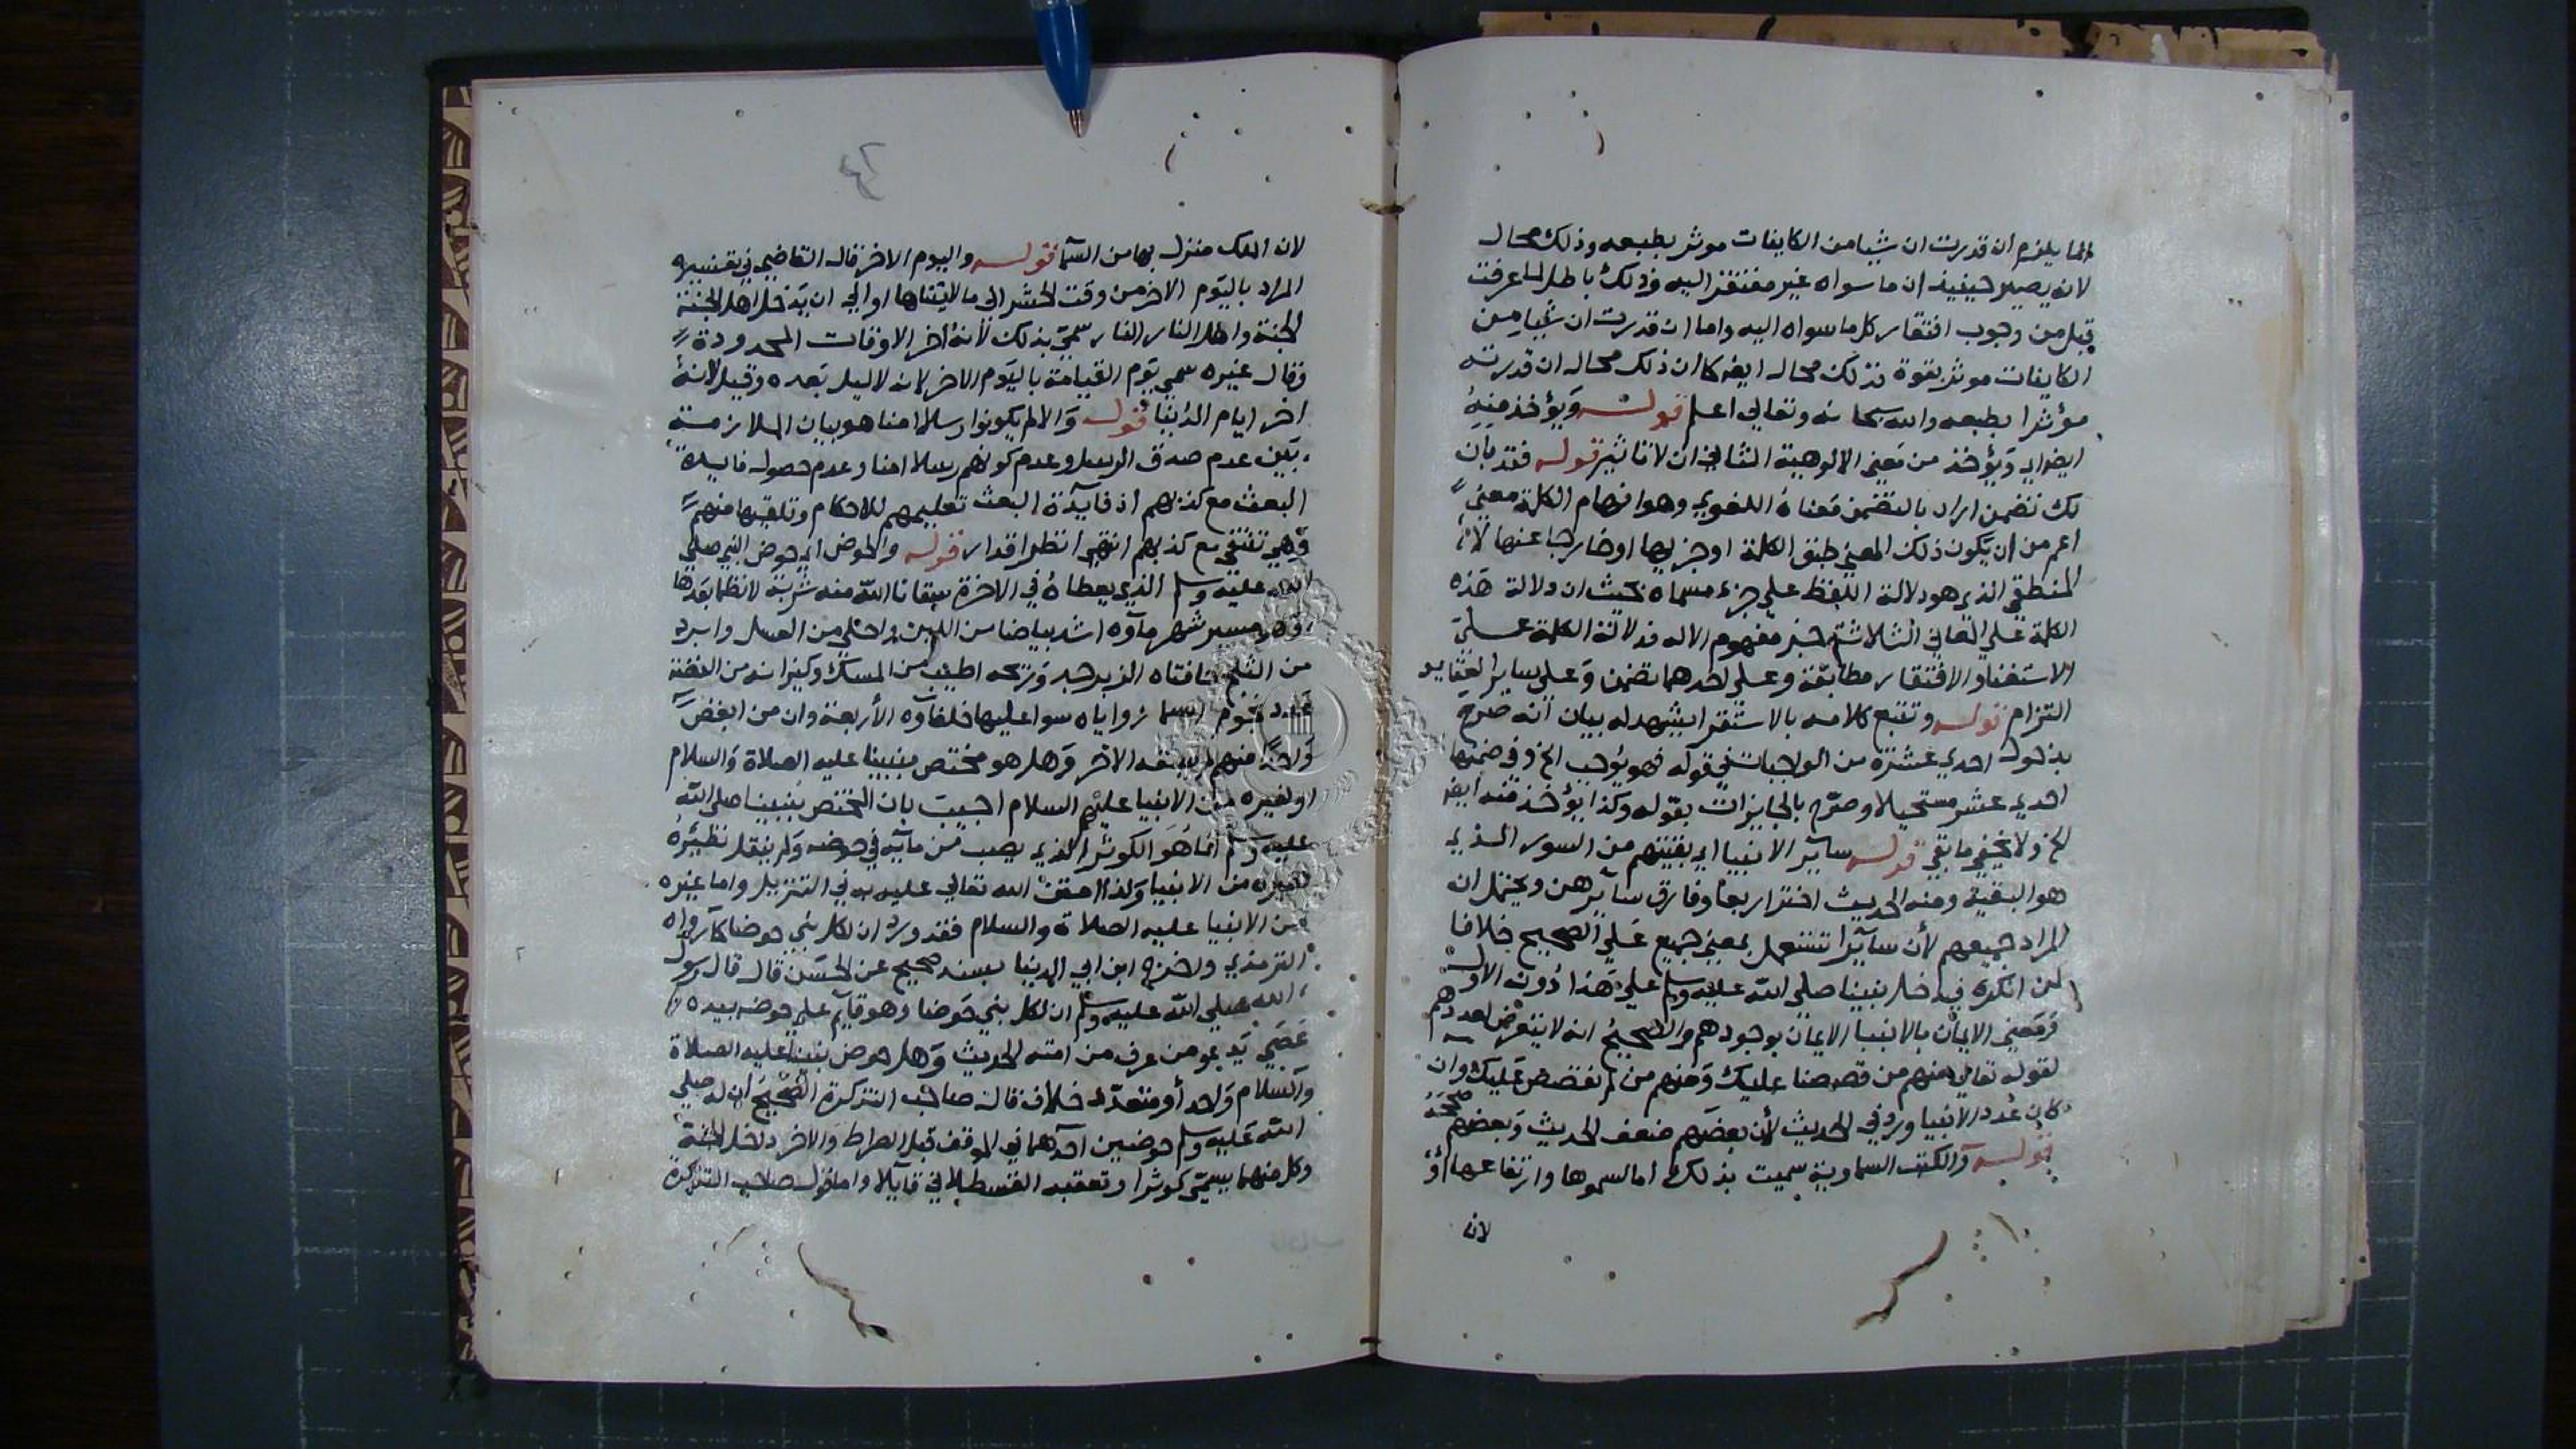 انما يلزم ان قدرت ان شيا من الكاينات موثر بطبعه وذلك محال
لانه يصير حينيذ ان ما سواه غير مفتقر اليه وذلك باطل لما عرفت
قبل من وجوب افتقار كل ما سواه اليه واما ان قدرت ان شيا من
الكاينات موثر بقوة فذلك محال ايضا كما ان ذلك محال ان قدرته
مؤثرا بطبعه والله سبحانه وتعالي اعلم قوله ويؤخذ منه
ايضا اي ويؤخذ من معني الالوهية الثاني ان لا تاثير قوله فقد بان
لك تضمن اراد بالتضمن معناه اللغوي وهو افهام الكلمة معني
اعم من ان يكون ذلك المعني طبق الكلمة او جزيها او خارجا عنها لا
المنطقي الذي هو دلالة اللفظ علي جزء مسماه بحيث ان دلالة هذه
الكلمة علي المعاني الثلاثة جز مفهوم الاله فدلالة الكلمة علي
الاستغنا والافتقار مطابقة وعلي احدهما تضمن وعلي ساير العقايد
التزام قوله وتتبع كلامه بالاستقرا يشهد له بيان انه صرح
بدخول احدي عشرة من الواجبات في قوله فهو يوجب الخ وفي ضمنها
احدي عشر مستحيلا وصرح بالجايزات بقوله وكذا يؤخذ منه ايضا
الخ ولا يخفي ما بقي قوله ساير الانبيا اي بقيتهم من السور الذي
هو البقية ومنه الحديث اختر اربعا وفارق سايرهن ويحتمل ان
المراد جميعهم لأن سايرا تستعمل بمعني جميع علي الصحيح خلافا
لمن انكره فيدخل نبينا صلي الله عليه وسلم علي هذا دون الاول
ومعني الايمان بالانبيا الايمان بوجودهم والصحيح انه لا يتعرض لعددهم
لقوله تعالي منهم من قصصنا عليك ومنهم من لم نقصص عليك وان
كان عدد الانبيا ورد في الحديث لأن بعضهم ضعف الحديث وبعضهم صححه
قوله والكتب السماوية سميت بذلك اما لسموها وارتفاعها او
لان
٤٢
لان الملك منزل بها من السما قوله واليوم الاخر قال القاضي في تفسيره
المراد باليوم الاخر من وقت الحشر الي ما لا يتناها او الي ان يدخل اهل الجنة
الجنة واهل النار النار سمي بذلك لأنه اخر الاوقات المحدودة
وقال غيره سمي يوم القيامة باليوم الاخر لانه لا ليل بعده وقيل لانه
اخر ايام الدنيا قوله والا لم يكونوا رسلا امنا هو بيان الملازمة
بين عدم صدق الرسل وعدم كونهم رسلا امنا وعدم حصول فايدة
البعث مع كذبهم اذ فايدة البعث تعليمهم للاحكام وتلقيها منهم
وهي تنتفي مع كذبهم انتهي انظر اقدار قوله والحوض اي حوض النبي صلي
الله عليه وسلم الذي يعطاه في الاخرة سقانا الله منه شربة لا نظما بعدها
وهو مسير شهر ماوه اشد بياضا من اللبن واحلي من العسل وابرد
من الثلج حافتاه الزبرجد وريحه اطيب من المسك وكيزانه من الفضة
عدد نجوم السما زواياه سوا عليها خلفاوه الأربعة وان من ابغض
واحدا منهم لم يسقه الاخر وهل هو مختص بنبينا عليه الصلاة والسلام
او لغيره من الانبيا عليهم السلام اجيب بان المختص بنبينا صلي الله
عليه وسلم انما هو الكوثر الذي يصب من مايه في حوضه ولم ينقل نظيره
لغيره من الانبيا ولذا امتن الله تعالي عليه به في التنزيل واما غيره
من الانبيا عليه الصلاة والسلام فقد ورد ان لكل نبي حوضا كما رواه
الترمذي واخرج ابن ابي الدنيا بسند صحيح عن الحسن قال قال رسول
الله صلي الله عليه وسلم ان لكل نبي حوضا وهو قايم علي حوضه بيده
عصي يدعو من عرف من امته الحديث وهل حوض نبينا عليه الصلاة
والسلام واحد أو متعدد خلاف قال صاحب التذكرة الصحيح ان له صلي
الله عليه وسلم حوضين احدهما في الموقف قبل الصراط والاخر داخل الجنة
وكل منهما يسمي كوثرا وتعقبه القسطلاني قايلا واما قول صاحب التذكرة